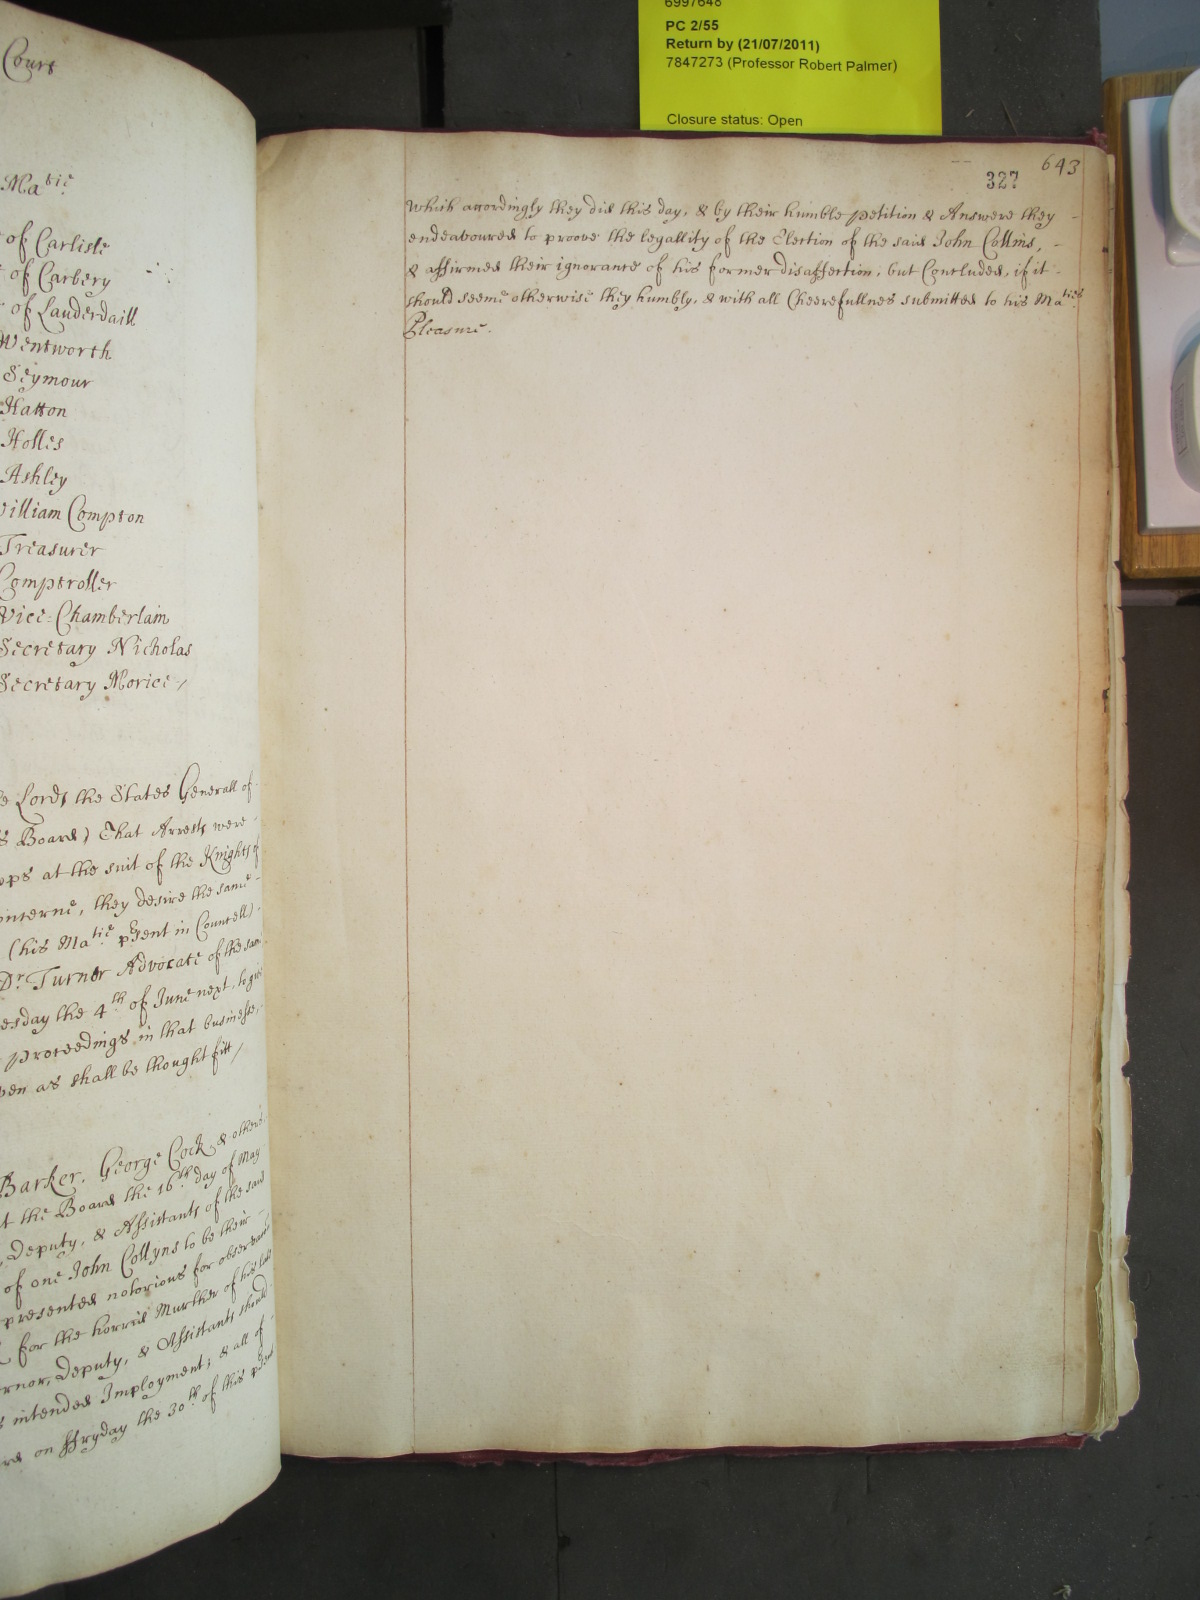 6997648
PC 2/55
Return by (21/07/2011)
7847273 (Professor Robert Palmer)
Closure status: Open
Court
Ma^tie
of Carlisle
of Carbery
of Lauderdaill
Wentworth
Seymour
Hatton
Holles
Ashley
William Compton
Treasurer
Comptroller
Vice-Chamberlain
Secretary Nicholas
Secretary Morice /
Lords the States Generall of
Board) That Arrests were
at the suit of the Knights of
they desire the same
(his Ma^tie p̃sent in Councell)
D^r Turner Advocate of the same
the 4^th of June next, to give
proceedings in that businesse,
as shall be thought fitt /
Barker, George Cock & others
the Board the 16^th day of May
Deputy, & Assistants of the said
of one John Collyns to be their
presented notorious for
for the horrid Murther of his late
Deputy, & Assistants should
intended Imployment; & all of
on ffryday the 30^th of this p̃sent
327
643
which accordingly they did this day, & by their humble petition & Answere they
endeavoured to proove the legallity of the Election of the said John Collins,
& affirmed their ignorance of his former disaffection, but Concluded, if it
should seeme otherwise they humbly, & with all Cheerefullnes submitted to his Ma^ties
Pleasure.